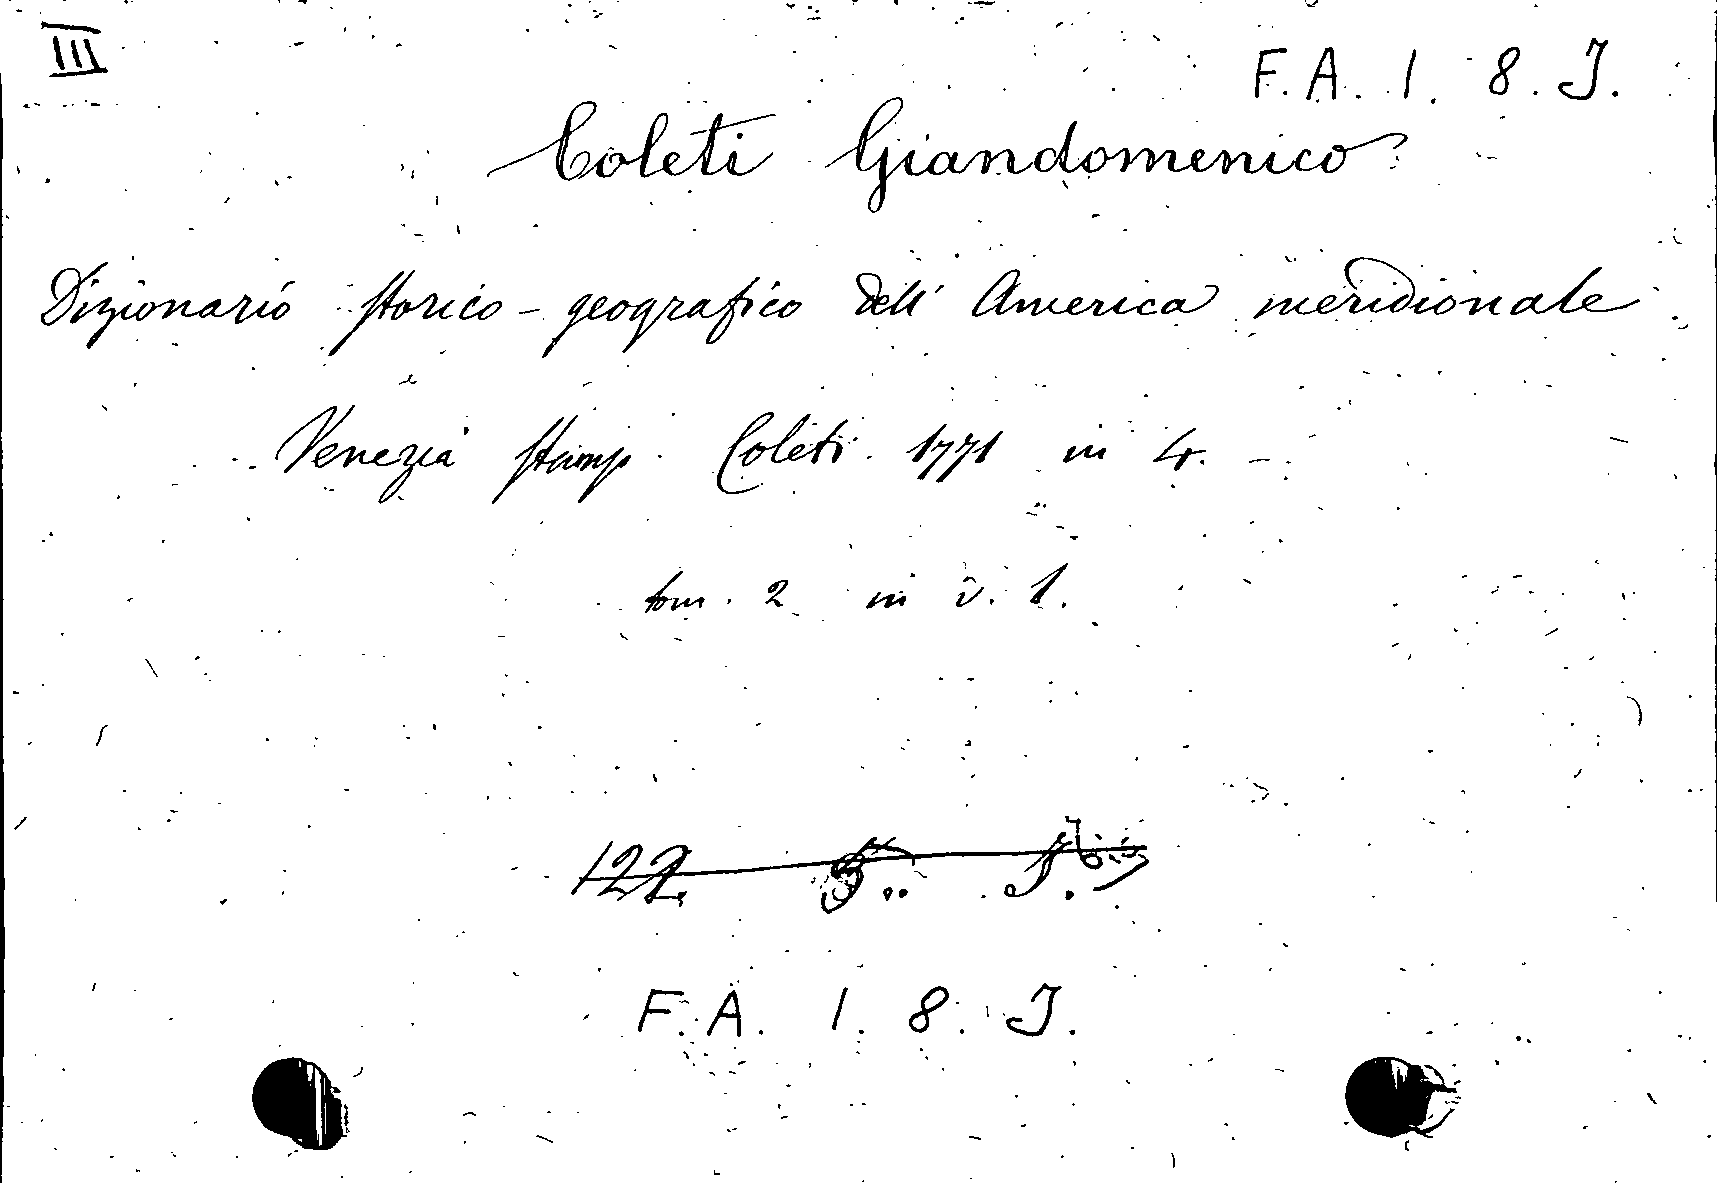 III
F. A. 1. 8. J.
Coleti Giandomenico
Dizionario storico-geografico dell' America meridionale
Venezia stamp. Coleti. 1771 in 4. -
tom. 2 in v. 1.
122. J. bis
F. A. 1. 8. J.